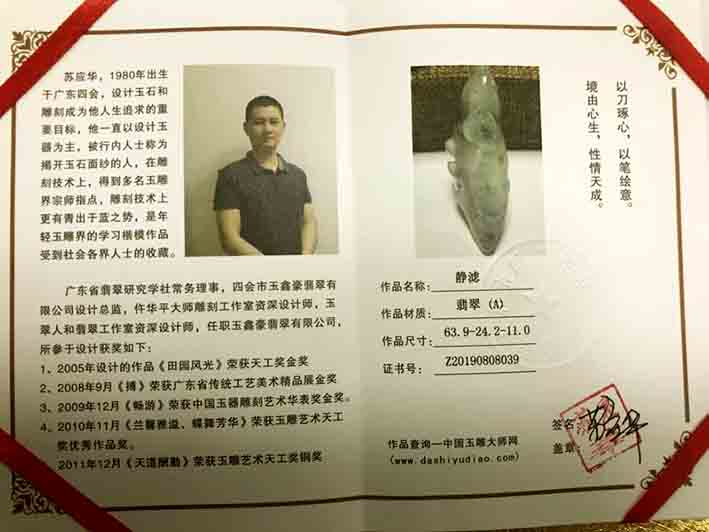 苏应华，1980年出生
于广东四会，设计玉石和
雕刻成为他人生追求的重
要目标，他一直以设计玉
器为主，被行内人士称为
揭开玉石面纱的人，在雕
刻技术上，得到多名玉雕
界宗师指点，雕刻技术上
更有青出于蓝之势，是年
轻玉雕界的学习楷模作品
受到社会各界人士的收藏。
广东省翡翠研究学社常务理事，四会市玉鑫豪翡翠有
限公司设计总监，仵华平大师雕刻工作室资深设计师，玉
翠人和翡翠工作室资深设计师，任职玉鑫豪翡翠有限公司，
所参于设计获奖如下：
1、2005年设计的作品《田园风光》荣获天工奖金奖
2、2008年9月《搏》荣获广东省传统工艺美术精品展金奖
3、2009年12月《畅游》荣获中国玉器雕刻艺术华表奖金奖。
4、2010年11月《兰馨雅溢、蝶舞芳华》荣获玉雕艺术天工
奖优秀作品奖。
2011年12月《天道酬勤》荣获玉雕艺术天工奖铜奖
以刀琢心，以笔绘意。
境由心生，性情天成。
作品名称：静滤
作品材质：翡翠（A）
作品尺寸：63.9-24.2-11.0
证书号：Z20190808039
作品查询—中国玉雕大师网
(www.dashiyudiao.com)
签名
盖章